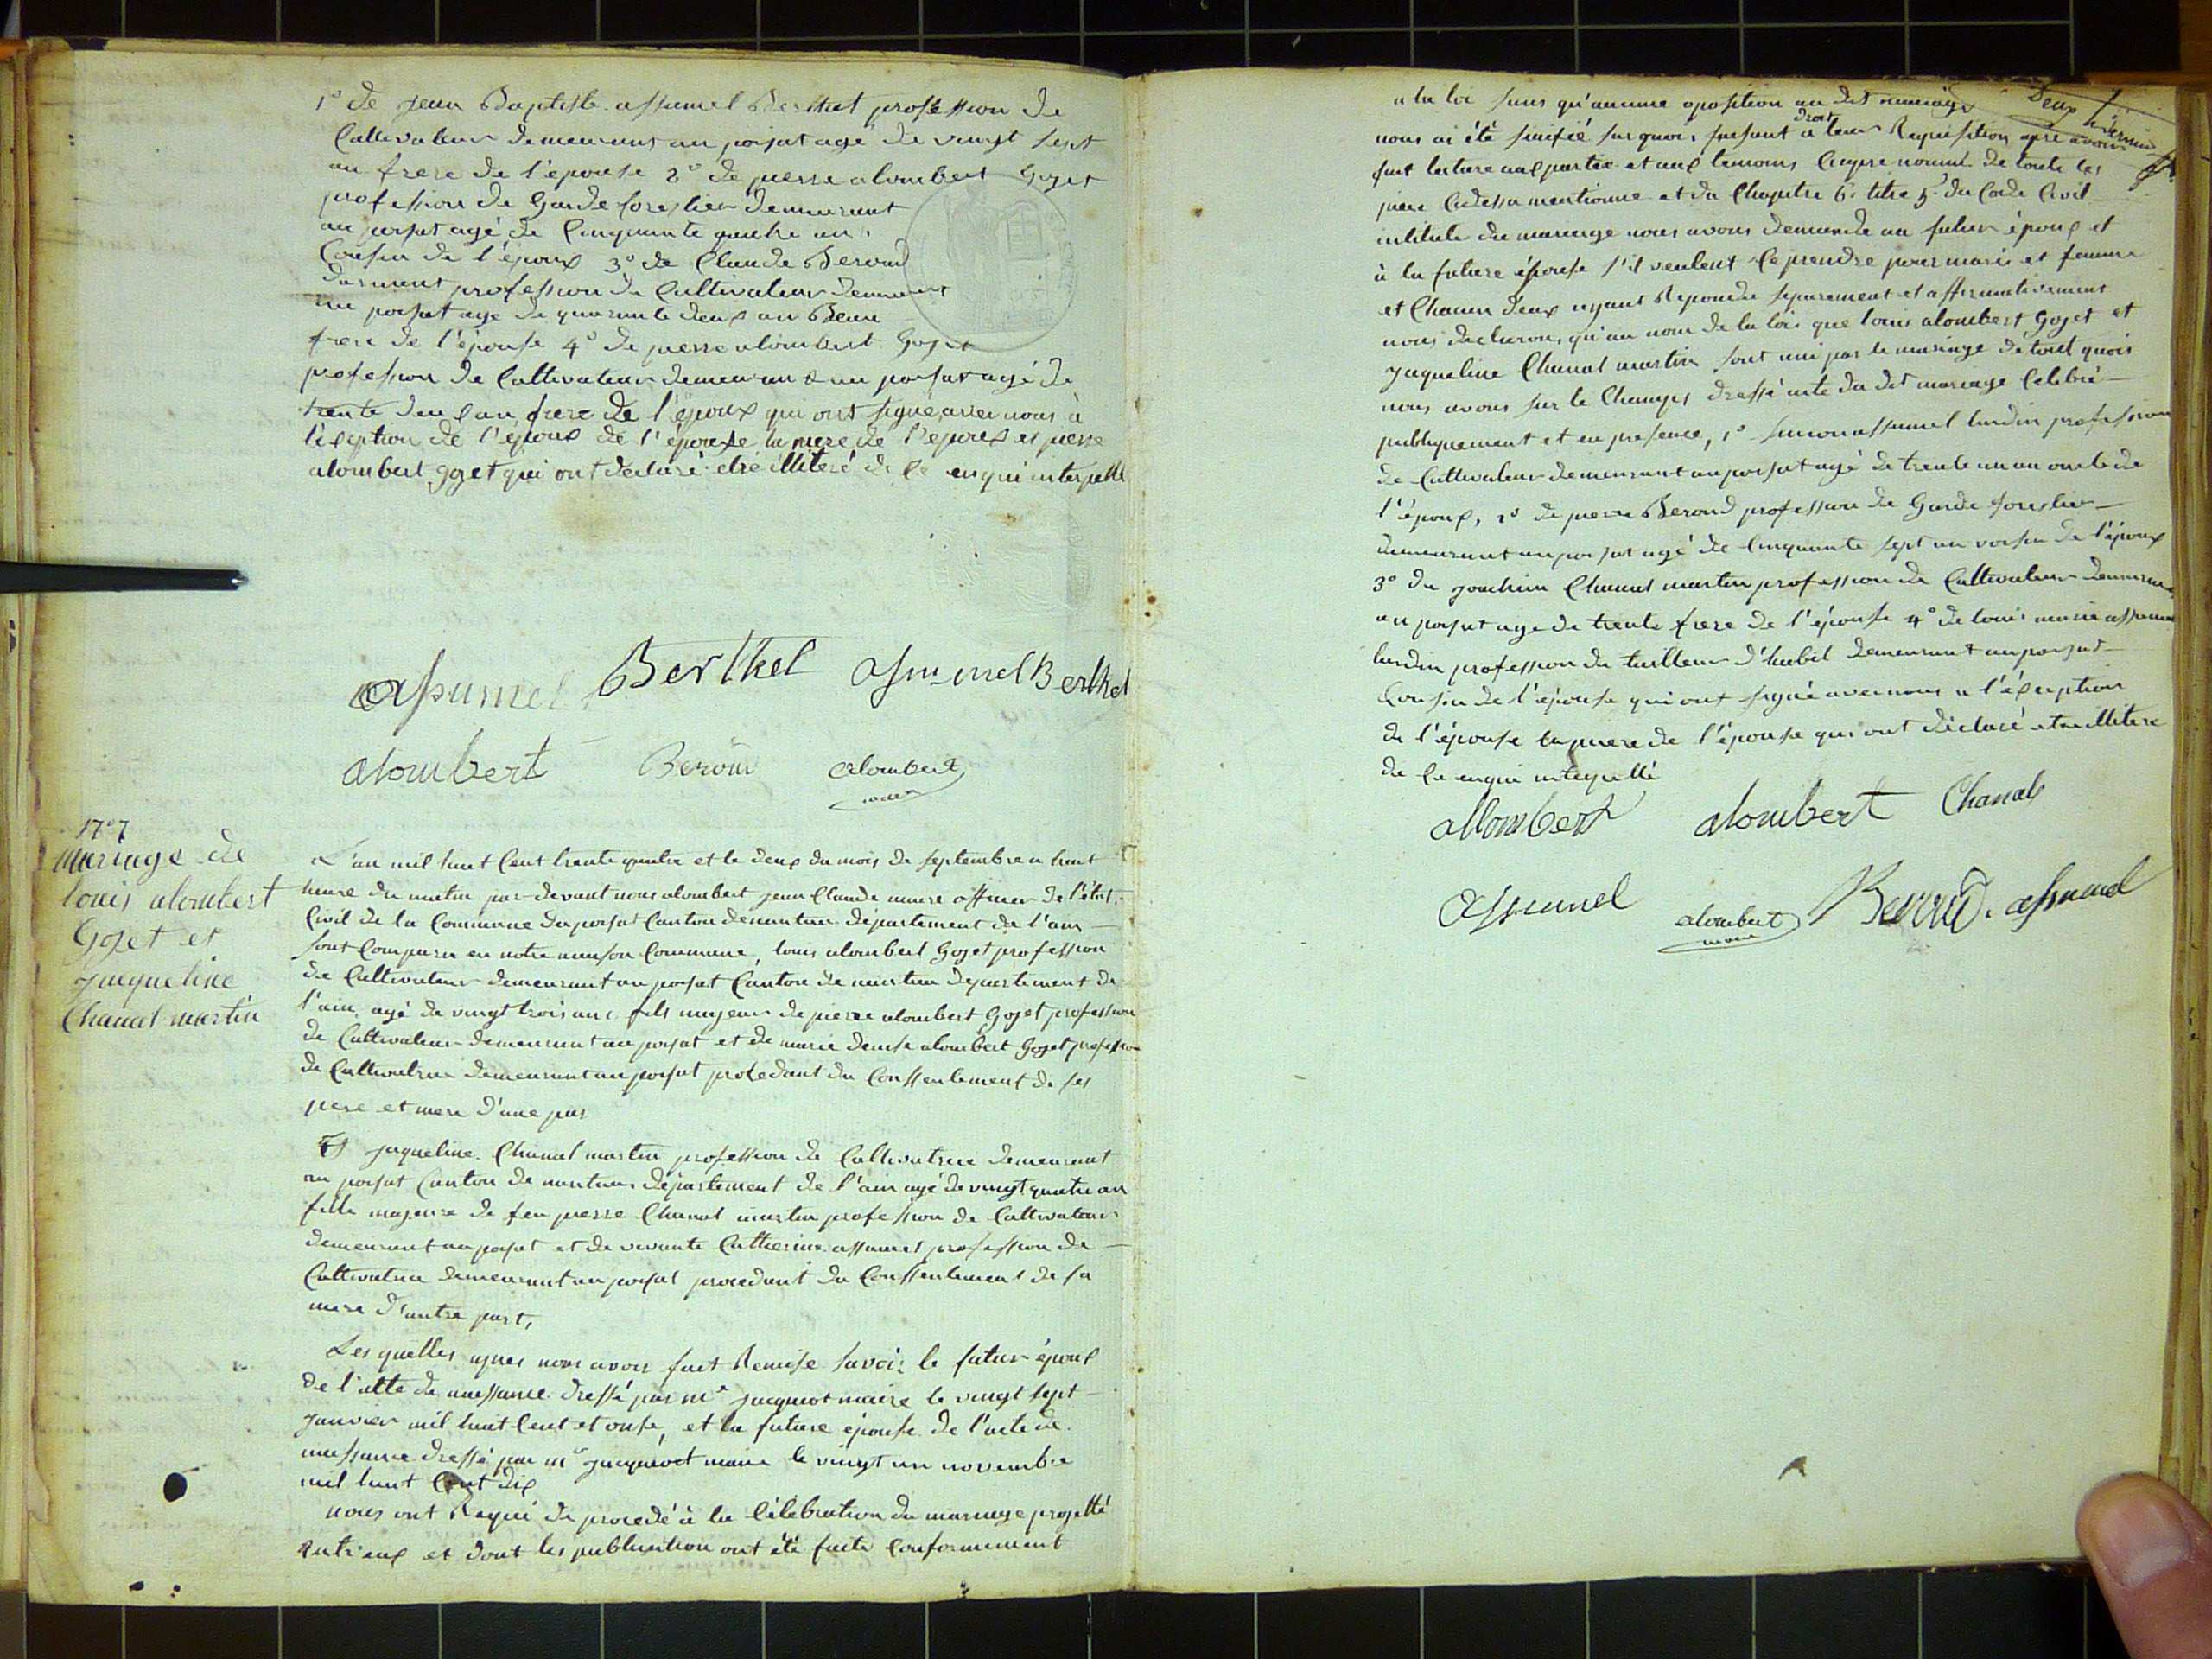 1° de jean Baptiste assumel Berthet profession de
Cultivateur demeurant au poisat agé de vingt sept
an frere de l'épouse 2° de pierre alombert Goget
profession de Garde forestier demeurant
au poisat agé de Cinquante quatre an
Cousin de l'époux 3° de Claude Beroud
profession de Cultivateur demeurant
au poisat age de quarante deux an Beau
frere de l'épouse 4° de pierre alombert Goget
profession de Cultivateur demeurant au poisat agé de
trente deux an frere de l'époux qui ont signé avec nous à
l'éxeption de l'époux de l'épouse la mere de l'époux et pierre
alombert goget qui ont declaré etre illiteré de ce enqui interpellé
assumel Berthet assumel Berthet
alombert Beroud alombert
maire
17° 7
Mariage de
louis alombert
Gojet et
jaqueline
Chanal martin
L'an mil huit Cent trente quatre et le deux du mois de septembre a huit
heure du matin par devant nous alombert jean Claude maire officier de l'état
Civil de la Commune du poisat Canton denantua département de l'ain
sont Comparu en notre maison Commune, louis alombert Gojet profession
de Cultivateur demeurant au poisat Canton de nantua departement de
l'ain, agé de vingt trois ans fils majeur de pierre alombert Gojet profession
de Cultivateur demeurant au poisat et de marie denise alombert Gojet profession
de Cultivatrice demeurant au poisat procedant du Conssentement de ses
pere et mere d'une par
Et jaqueline Chanal martin profession de Cultivatrice demeurant
au poisat Canton de nantua département de l'ain agé de vingt quatre an
fille majeure de feu pierre Chanal martin profession de Cultivateur
demeurant au poisat et de vivante Catherine assumel profession de
Cultivatrice demeurant au poisat procedant du Conssentement de sa
mere d'autre part,
Les quelles apres nous avoir fait Remise savoir le futur époux
de l'atte de naissance dressé par mr jacquiot maire le vingt sept
janvier mil huit Cent et onse, et la future épouse de l'acte de
naissance dressé par mr jacquiot maire le vingt un novembre
mil huit Cent dix
nous ont Requi de procedé à la Célébration du mariage projetté
entr'eux et dont les publication ont été faite Conformement
a la loi sans qu'aucune oposition au dit mariage
nous ai été sinifié sur quoi faisant droit a leur Requisition apre avoir
fait lecture aux partie et aux temoins Cyapre nommé de toute les
piece Cidessu mentionne et du Chapitre 6. titre 5. du Code Civil
intitulé du mariage nous avons demandé au futur époux et
à la future épouse s'il veulent ce prendre pour mari et femme
et Chacun deux ayant Repondu separement et affirmativement
nous declarons qu'au nom de la loi que louis alombert Gojet et
jaqueline Chanal martin sont uni par le mariage de tout quoi
nous avons sur le Champs dressé acte du dit mariage Célébré
publiquement et en presence, 1° assumel lardin profession
de Cultivateur demeurant au poisat agé de trente un an oncle de
l'époux, 2° de pierre Beroud profession de Garde forestier
demeurant au poisat agé de Cinquante sept an voisin de l'époux
3° de joachim Chanal martin profession de Cultivateur demeurant
au poisat age de trente frere de l'épouse 4° de louis marie assumel
lardin profession de tailleur d'habit demeurant au poisat
Cousin de l'épouse qui ont signé avec nous a l'éxception
de l'épouse la mere de l'épouse qui ont déclaré etre illitere
de Ce enqui interpellé
allombert alombert Chanal
assumel alombert Beroud assumel
maire